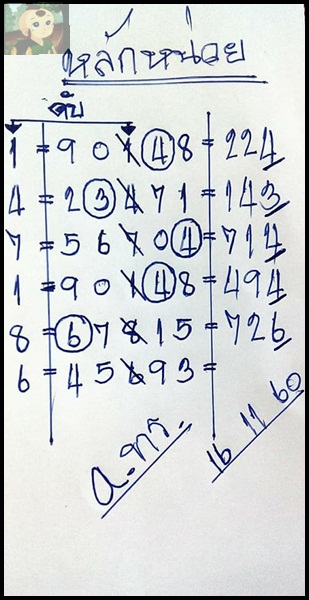 หลักหน่วย
ดับ
1 = 9 0 1 4 8 = 224
4 = 2 3 4 7 1 = 143
7 = 5 6 7 0 4 = 714
1 = 9 0 1 4 8 = 494
8 = 6 7 8 1 5 = 726
6 = 4 5 6 9 3 =
16 11 60